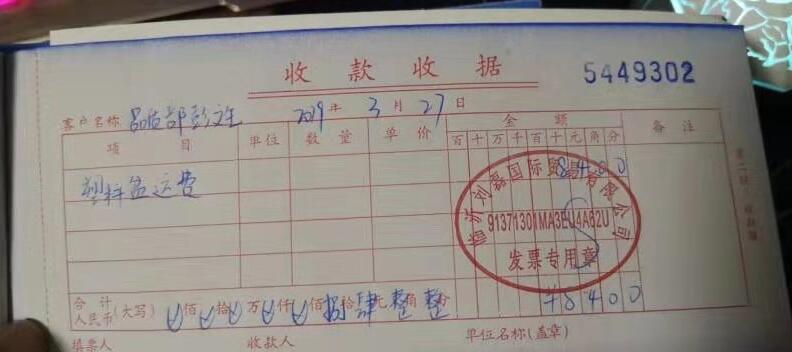 收款收据 5449302
客户名称 品质部彭文生 2019年3月27日
项目 单位 数量 单价 金额 备注
百十万千百十元角分
塑料盒运费 8400
临沂刘磊国际贸易有限公司
91371301MA3EU4A62U
发票专用章
合计人民币(大写) 佰拾万仟佰捌拾肆元整角整分 ¥8400
填票人 收款人 单位名称(盖章)